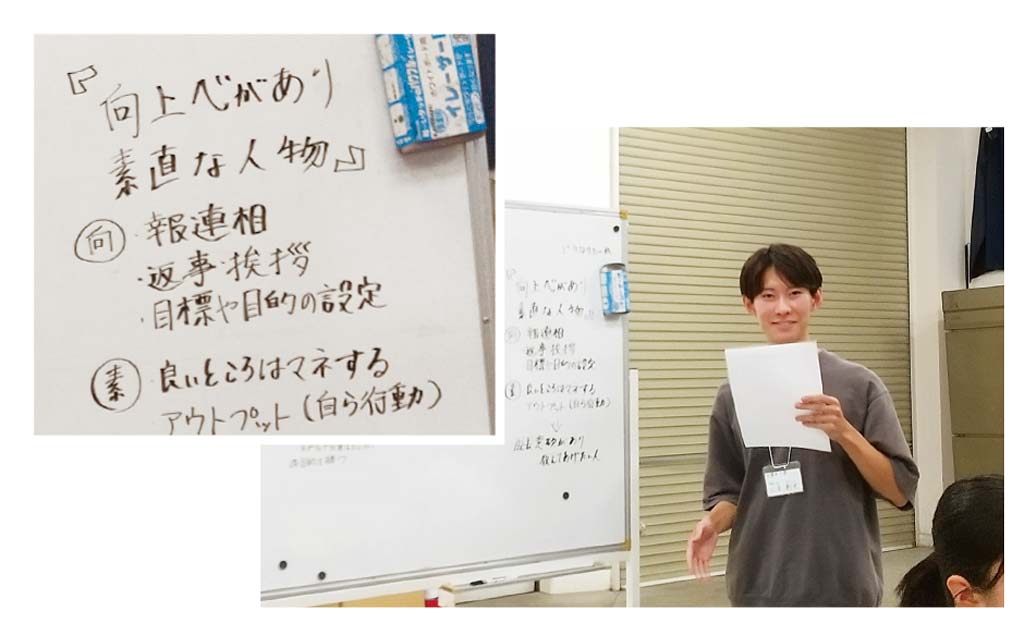 『向上心があり
素直な人物』
向・報連相
・返事・挨拶
・目標や目的の設定
素 良いところはマネする
アウトプット(自ら行動)
ホワイトボード用
イレーザー
向上心があり
素直な人物』
向 報連相
返事・挨拶
目標や目的の設定
素 良いところはマネする
アウトプット(自ら行動)
教えてあげたい人